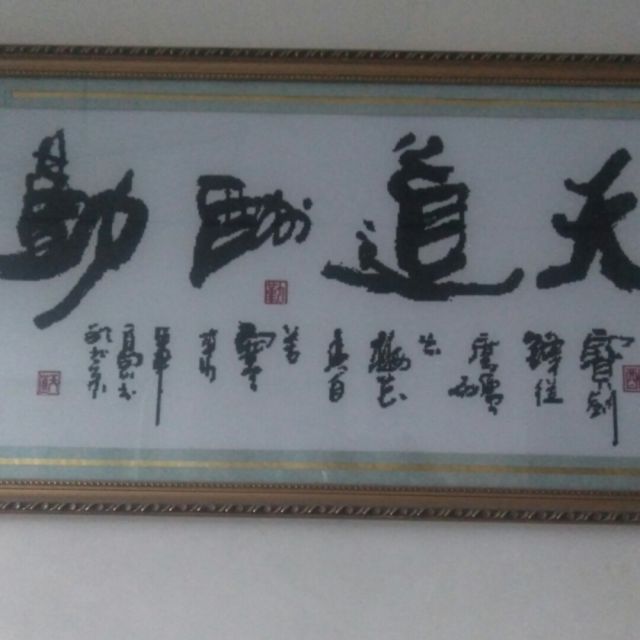 天道酬勤
寶剑
鋒從
磨礪
出
梅花
香自
苦
寒
來